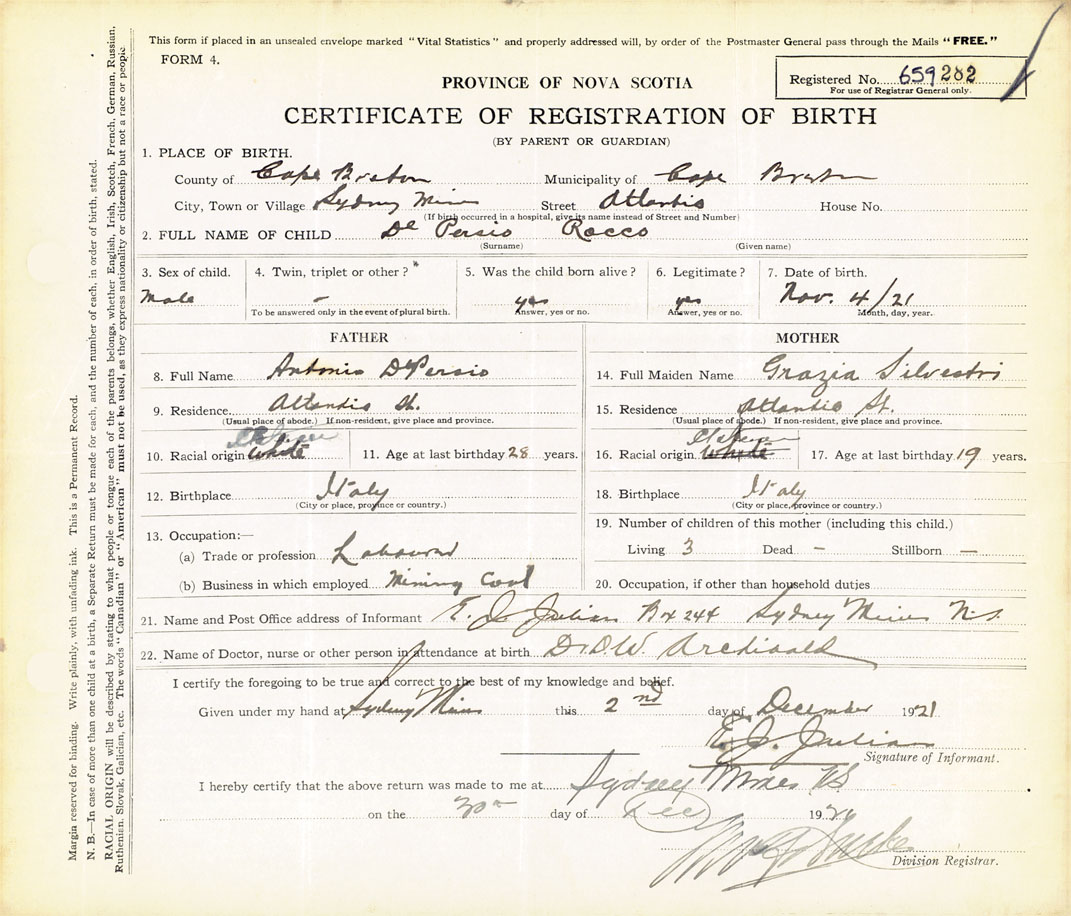 This form if placed in an unsealed envelope marked "Vital Statistics" and properly addressed will, by order of the Postmaster General pass through the Mails "FREE."
FORM 4.
Registered No. 659282
For use of Registrar General only.
PROVINCE OF NOVA SCOTIA
CERTIFICATE OF REGISTRATION OF BIRTH
(BY PARENT OR GUARDIAN)
1. PLACE OF BIRTH.
County of Cape Breton Municipality of Cape Breton
City, Town or Village Sydney Mines Street Atlantic House No.
(If birth occurred in a hospital, give its name instead of Street and Number)
2. FULL NAME OF CHILD De Persio Rocco
(Surname) (Given name)
3. Sex of child. 4. Twin, triplet or other?* 5. Was the child born alive? 6. Legitimate? 7. Date of birth.
Male – yes yes Nov. 4/21
To be answered only in the event of plural birth. Answer, yes or no. Answer, yes or no. Month, day, year.
FATHER
8. Full Name Antonio DePersio
9. Residence Atlantic St.
(Usual place of abode.) If non-resident, give place and province.
10. Racial origin White Italian 11. Age at last birthday 28 years.
12. Birthplace Italy
(City or place, province or country.)
13. Occupation:—
(a) Trade or profession Labourer
(b) Business in which employed Mining Coal
MOTHER
14. Full Maiden Name Grazia Silvestri
15. Residence Atlantic St.
(Usual place of abode.) If non-resident, give place and province.
16. Racial origin White Italian 17. Age at last birthday 19 years.
18. Birthplace Italy
(City or place, province or country.)
19. Number of children of this mother (including this child.)
Living 3 Dead – Stillborn —
20. Occupation, if other than household duties
21. Name and Post Office address of Informant E. J. Julian Box 244 Sydney Mines N.S.
22. Name of Doctor, nurse or other person in attendance at birth Dr. B.W. Archibald
I certify the foregoing to be true and correct to the best of my knowledge and belief.
Given under my hand at Sydney Mines this 2nd day of December 1921
E. J. Julian
Signature of Informant.
I hereby certify that the above return was made to me at Sydney Mines NS
on the day of Dec 192
Division Registrar.
Margin reserved for binding. Write plainly, with unfading ink. This is a Permanent Record.
N. B.—In case of more than one child at a birth, a Separate Return must be made for each, and the number of each, in order of birth, stated.
RACIAL ORIGIN will be described by stating to what people or tongue each of the parents belongs, whether English, Irish, Scotch, French, German, Russian,
Ruthenian, Slovak, Galician, etc. The words "Canadian" or "American" must not be used, as they express nationality or citizenship but not a race or people